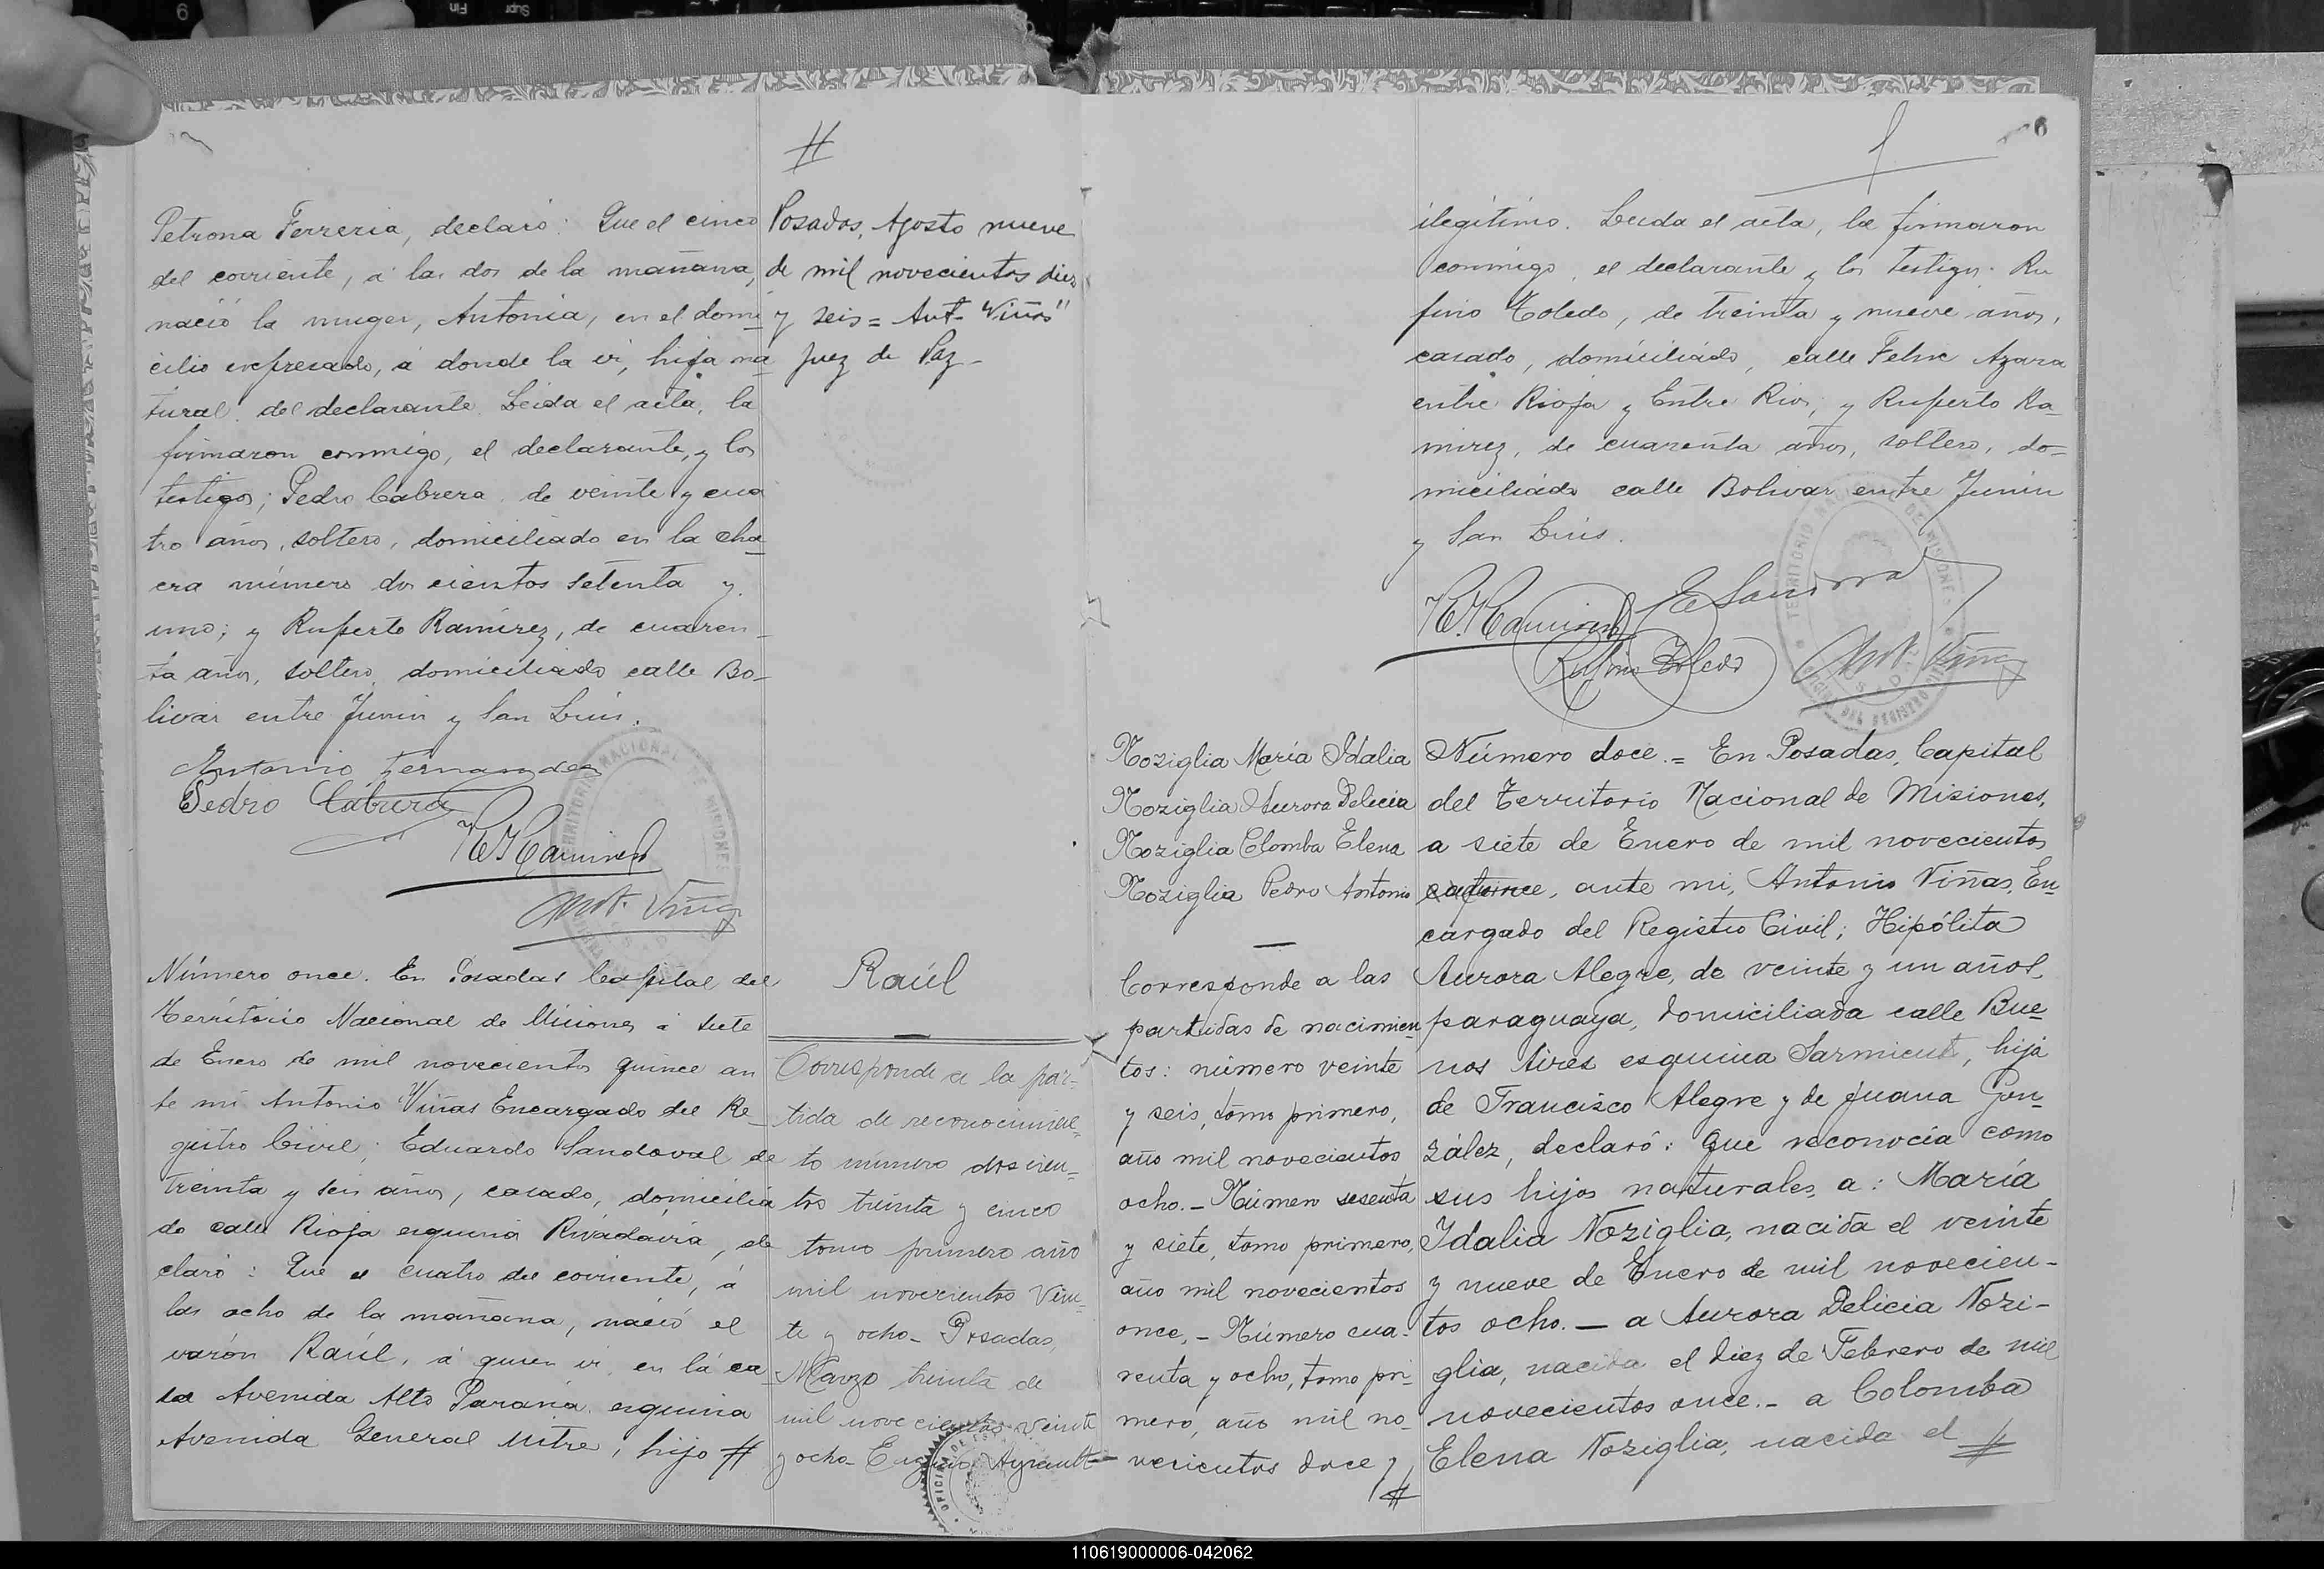 #
Petrona Ferreria, declaró: Que el cinco
del corriente, á las dos de la mañana,
nació la muger, Antonia, en el domi
cilio expresado, á donde la vi, hija na
tural del declarante. Leida el acta, la
firmaron conmigo, el declarante, y los
testigos; Pedro Cabrera, de veinte y cua
tro años, soltero, domiciliado en la cha
cra número dos cientos setenta y
uno; y Ruperto Ramirez, de cuaren-
ta años, soltero, domiciliado calle Bo-
livar entre Junin y San Luis.
Antonio Fernandez
Pedro Cabrera
R. Ramirez
Ant. Viñas
Posadas, Agosto nueve
de mil novecientos diez
y seis = Ant. Viñas"
Juez de Paz-
Número once. En Posadas Capital del
Território Nacional de Misiones á siete
de Enero de mil novecientos quince an
te mi Antonio Viñas Encargado del Re-
gistro Civil; Eduardo Sandoval de
treinta y seis años, casado, domicilia
do calle Rioja esquina Rivadavia, de
claró: Que el cuatro del corriente, á
las ocho de la mañana, nació el
varón Raúl, á quien vi en la ca
sa Avenida Alto Paraná esquina
Avenida General Mitre, hijo #
Raúl
Corresponde a la par-
tida de reconocimien-
to número doscien-
tos treinta y cinco
tomo primero año
mil novecientos vein-
te y ocho- Posadas,
Marzo treinta de
mil novecientos veinte
y ocho- Ayrault
6
ilegítimo. Leida el acta, la firmaron
conmigo, el declarante y los testigos: Ru
fino Toledo, de treinta y nueve años,
casado, domiciliado, calle Felix Azara
entre Rioja y Entre Rios, y Ruperto Ra-
mirez, de cuarenta años, soltero, do-
miciliado calle Bolivar entre Junin
y San Luis.
R. Ramirez
E Sandoval
Rufino Toledo
Ant. Viñas
Noziglia María Idalia
Noziglia Aurora Delicia
Noziglia Clomba Elena
Noziglia Pedro Antonio
Corresponde a las
partidas de nacimien
tos: número veinte
y seis, tomo primero,
año mil novecientos
ocho.- Número sesenta
y siete, tomo primero,
año mil novecientos
once,- Número cua-
renta y ocho, tomo pri-
mero, año mil no-
vecientos doce y
#
Número doce.= En Posadas, Capital
del Territorio Nacional de Misiones,
a siete de Enero de mil novecientos
quince, ante mi, Antonio Viñas, En-
cargado del Registro Civil; Hipólita
Aurora Alegre, de veinte y un años,
paraguaya, domiciliada calle Bue
nos Aires esquina Sarmiento, hija
de Francisco Alegre y de Juana Gon-
zález, declaró: Que reconocía como
sus hijos naturales, a: María
Idalia Noziglia, nacida el veinte
y nueve de Enero de mil novecien-
tos ocho.- a Aurora Delicia Nozi-
glia, nacida el diez de Febrero de mil
novecientos once.- a Colomba
Elena Noziglia, nacida el #
110619000006-042062